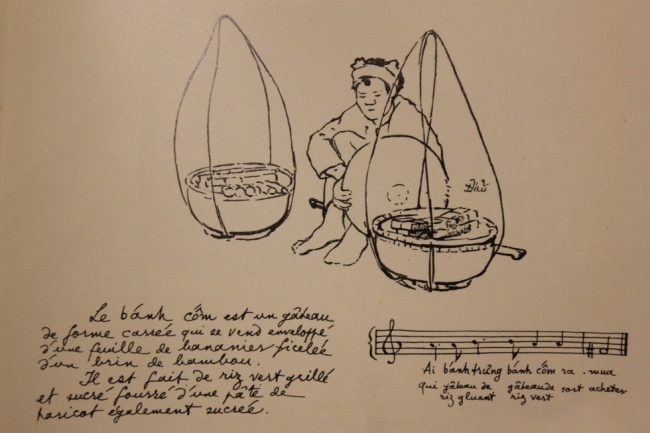 Đậu
Le bánh cốm est un gâteau
de forme carrée qui se vend enveloppé
d'une feuille de bananier ficelée
d'un brin de bambou.
Il est fait de riz vert grillé
et sucré fourré d'une pâte de
haricot également sucrée.
Ai bánh trưng bánh cốm ra . mua
qui gâteau de gâteau de sort acheter
riz gluant riz vert